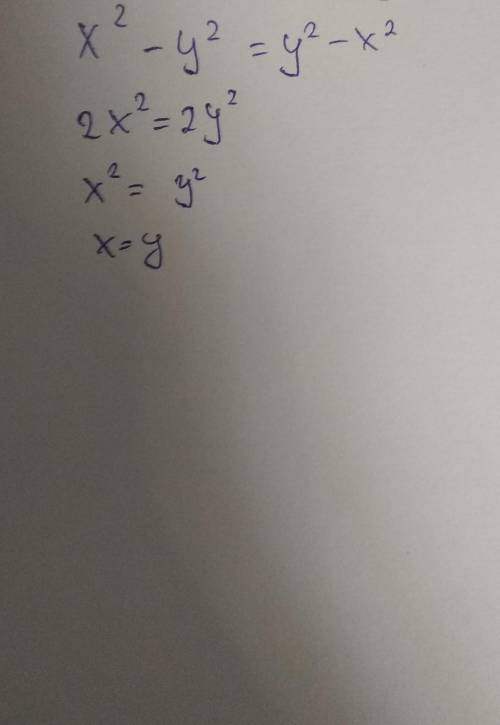 x² - y² = y² - x²
2x² = 2y²
x² = y²
x = y